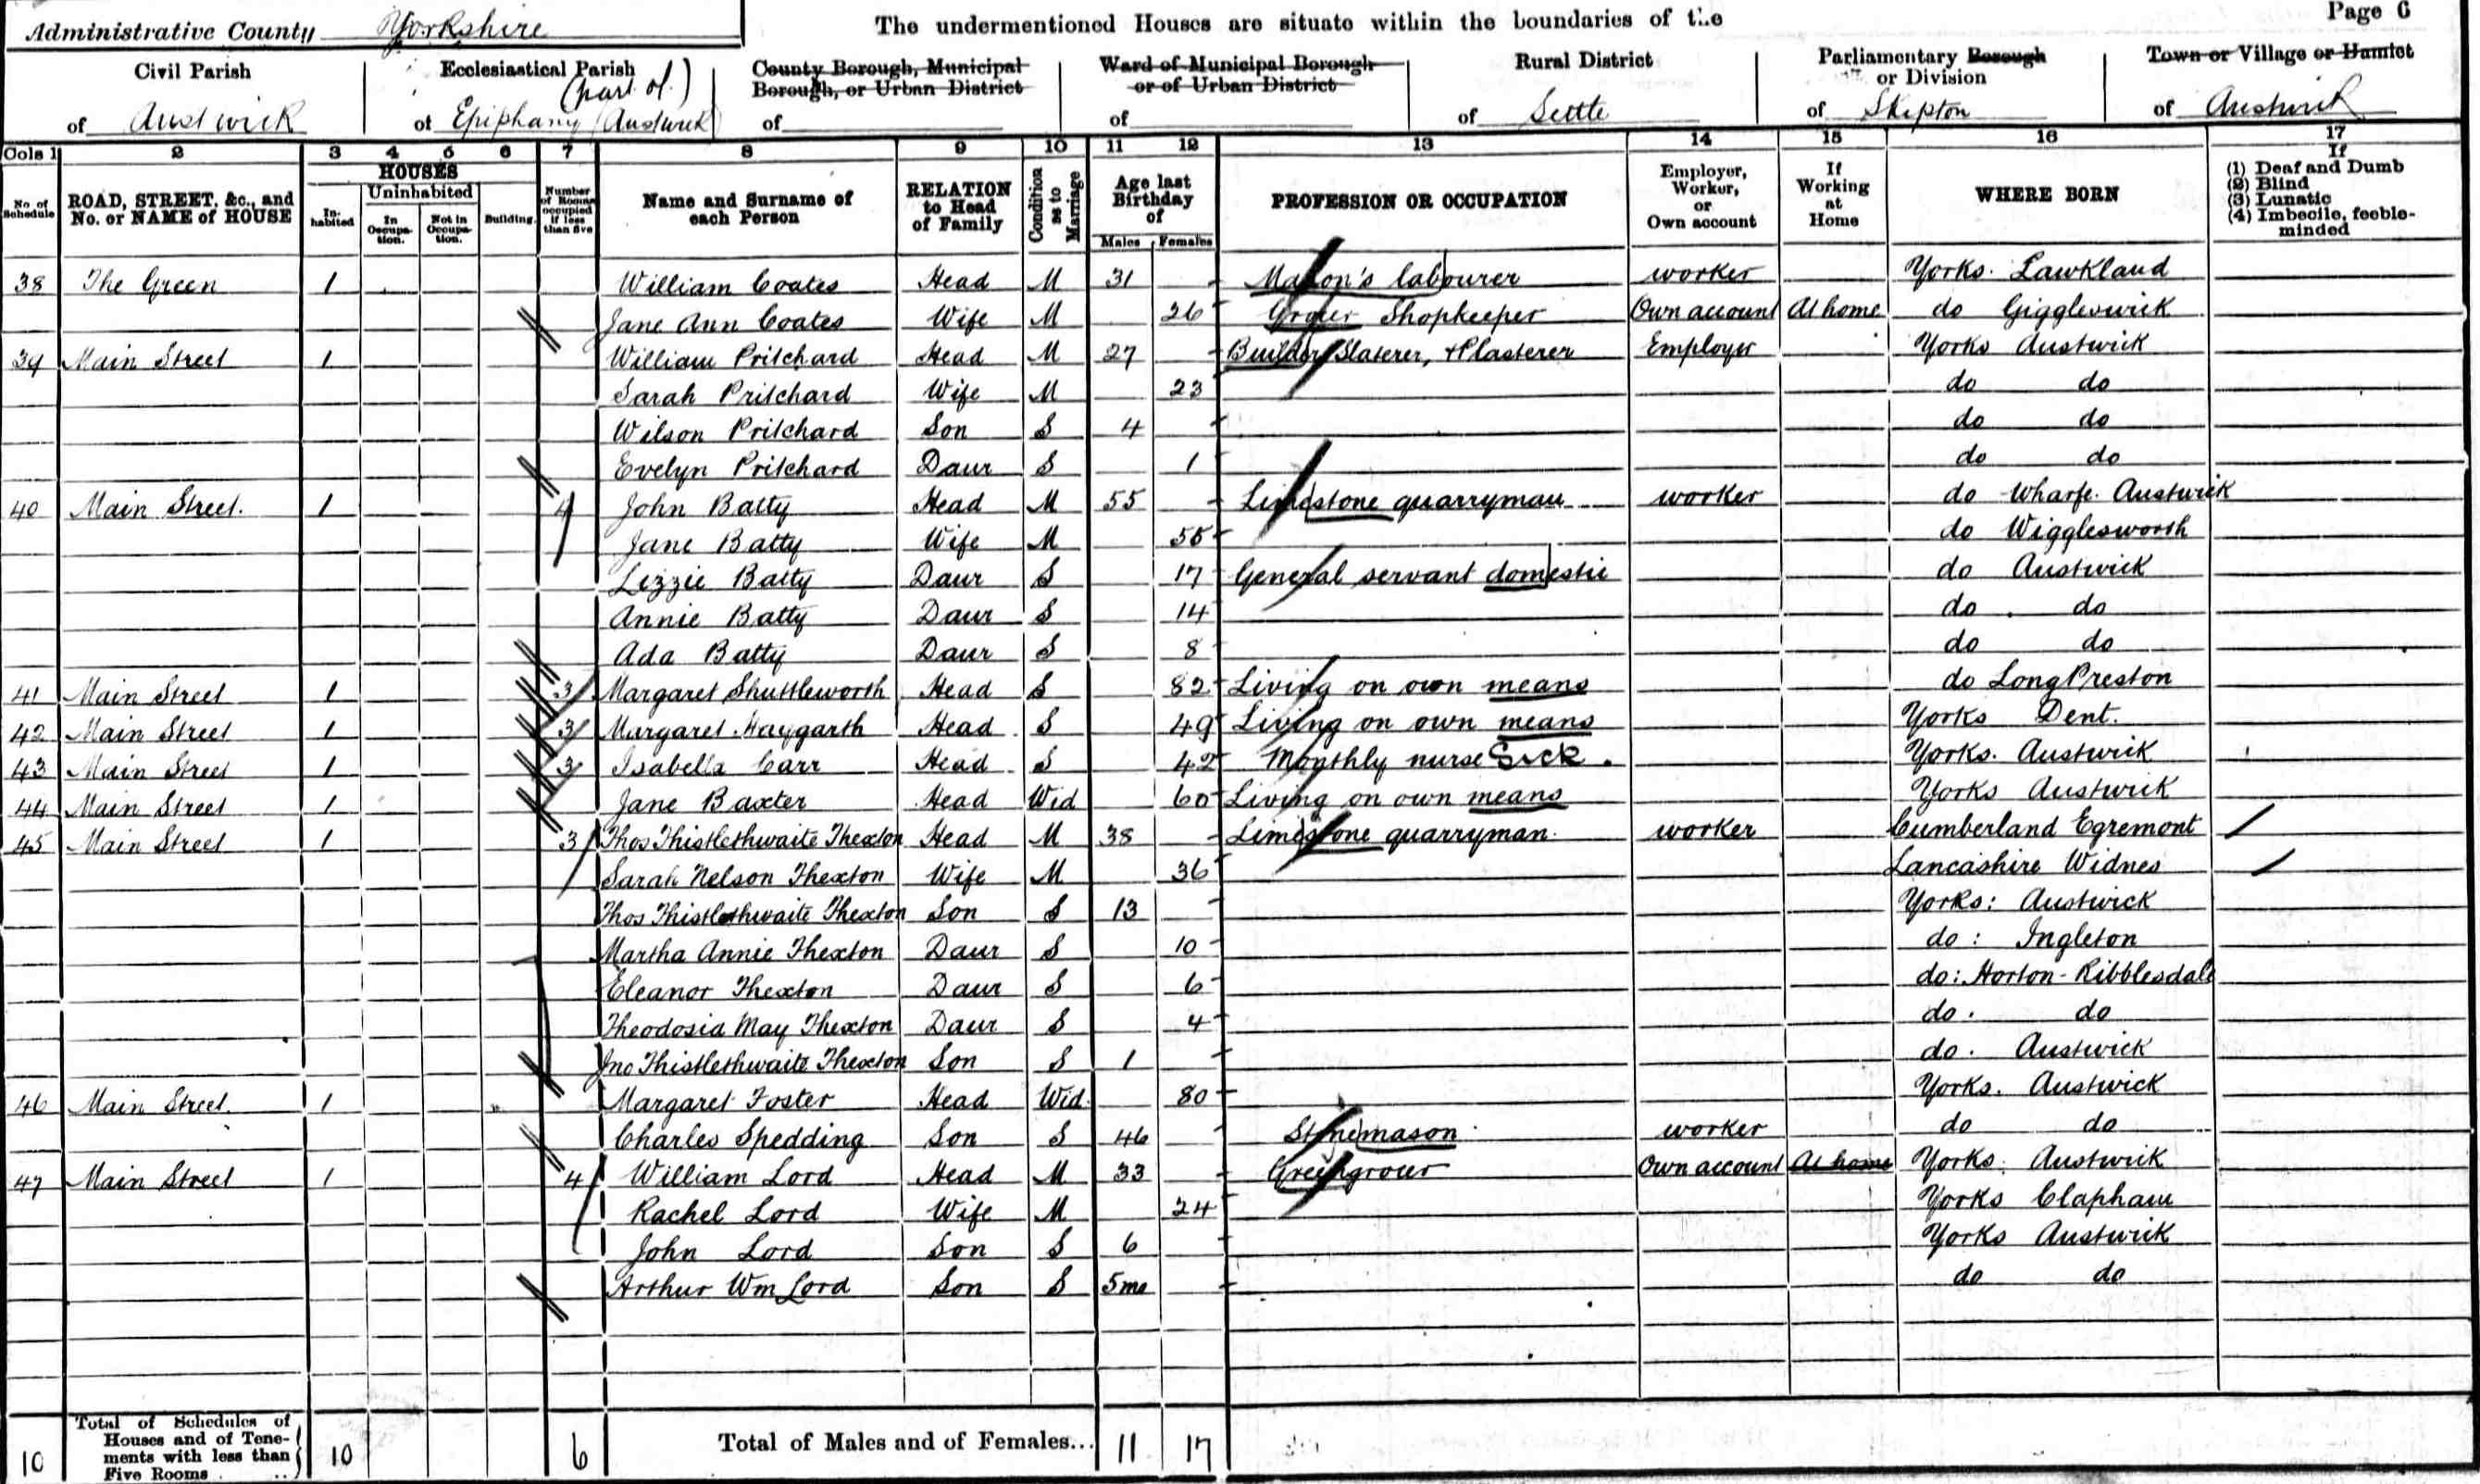 Administrative County Yorkshire
The undermentioned Houses are situate within the boundaries of the
Page 6
Civil Parish of Austwick
Ecclesiastical Parish (part of) of Epiphany (Austwick)
County Borough, Municipal Borough, or Urban District of
Ward of Municipal Borough or of Urban District of
Rural District of Settle
Parliamentary Borough or Division of Skipton
Town or Village or Hamlet of Austwick
Cols 1 2 3 4 5 6 7 8 9 10 11 12 13 14 15 16 17
No. of Schedule
ROAD, STREET, &c., and No. or NAME of HOUSE
HOUSES
Inhabited
Uninhabited
In Occupation.
Not in Occupation.
Building.
Number of Rooms occupied if less than five
Name and Surname of each Person
RELATION to Head of Family
Condition as to Marriage
Age last Birthday of
Males Females
PROFESSION OR OCCUPATION
Employer, Worker, or Own account
If Working at Home
WHERE BORN
If (1) Deaf and Dumb (2) Blind (3) Lunatic (4) Imbecile, feeble-minded
38 The Green 1 William Coates Head M 31 Mason's labourer worker Yorks. Lawkland
Jane Ann Coates Wife M 26 Grocer Shopkeeper Own account At home do Giggleswick
39 Main Street 1 William Pritchard Head M 27 Builder, Slaterer, + Plasterer Employer Yorks Austwick
Sarah Pritchard Wife M 23 do do
Wilson Pritchard Son S 4 do do
Evelyn Pritchard Daur S 1 do do
40 Main Street. 1 4 John Batty Head M 55 Limestone quarryman worker do Wharfe. Austwick
Jane Batty Wife M 55 do Wigglesworth
Lizzie Batty Daur S 17 General servant domestic do Austwick
Annie Batty Daur S 14 do do
Ada Batty Daur S 8 do do
41 Main Street 1 3 Margaret Shuttleworth Head S 82 Living on own means do Long Preston
42 Main Street 1 3 Margaret Haygarth Head S 49 Living on own means Yorks Dent.
43 Main Street 1 3 Isabella Carr Head S 42 Monthly nurse Sick. Yorks. Austwick
44 Main Street 1 Jane Baxter Head Wid 60 Living on own means Yorks Austwick
45 Main Street 1 3 Thos Thistlethwaite Thexton Head M 38 Limestone quarryman. worker Cumberland Egremont
Sarah Nelson Thexton Wife M 36 Lancashire Widnes
Thos Thistlethwaite Thexton Son S 13 Yorks: Austwick
Martha Annie Thexton Daur S 10 do: Ingleton
Eleanor Thexton Daur S 6 do: Horton-Ribblesdale
Theodosia May Thexton Daur S 4 do. do
Jno Thistlethwaite Thexton Son S 1 do. Austwick
46 Main Street. 1 Margaret Foster Head Wid. 80 Yorks. Austwick
Charles Spedding Son S 46 Stonemason worker do do
47 Main Street 1 4 William Lord Head M 33 Greengrocer Own account At home Yorks. Austwick
Rachel Lord Wife M 24 Yorks Clapham
John Lord Son S 6 Yorks Austwick
Arthur Wm Lord Son S 5 mo do do
10 Total of Schedules of Houses and of Tenements with less than Five Rooms 10 6 Total of Males and of Females... 11 17